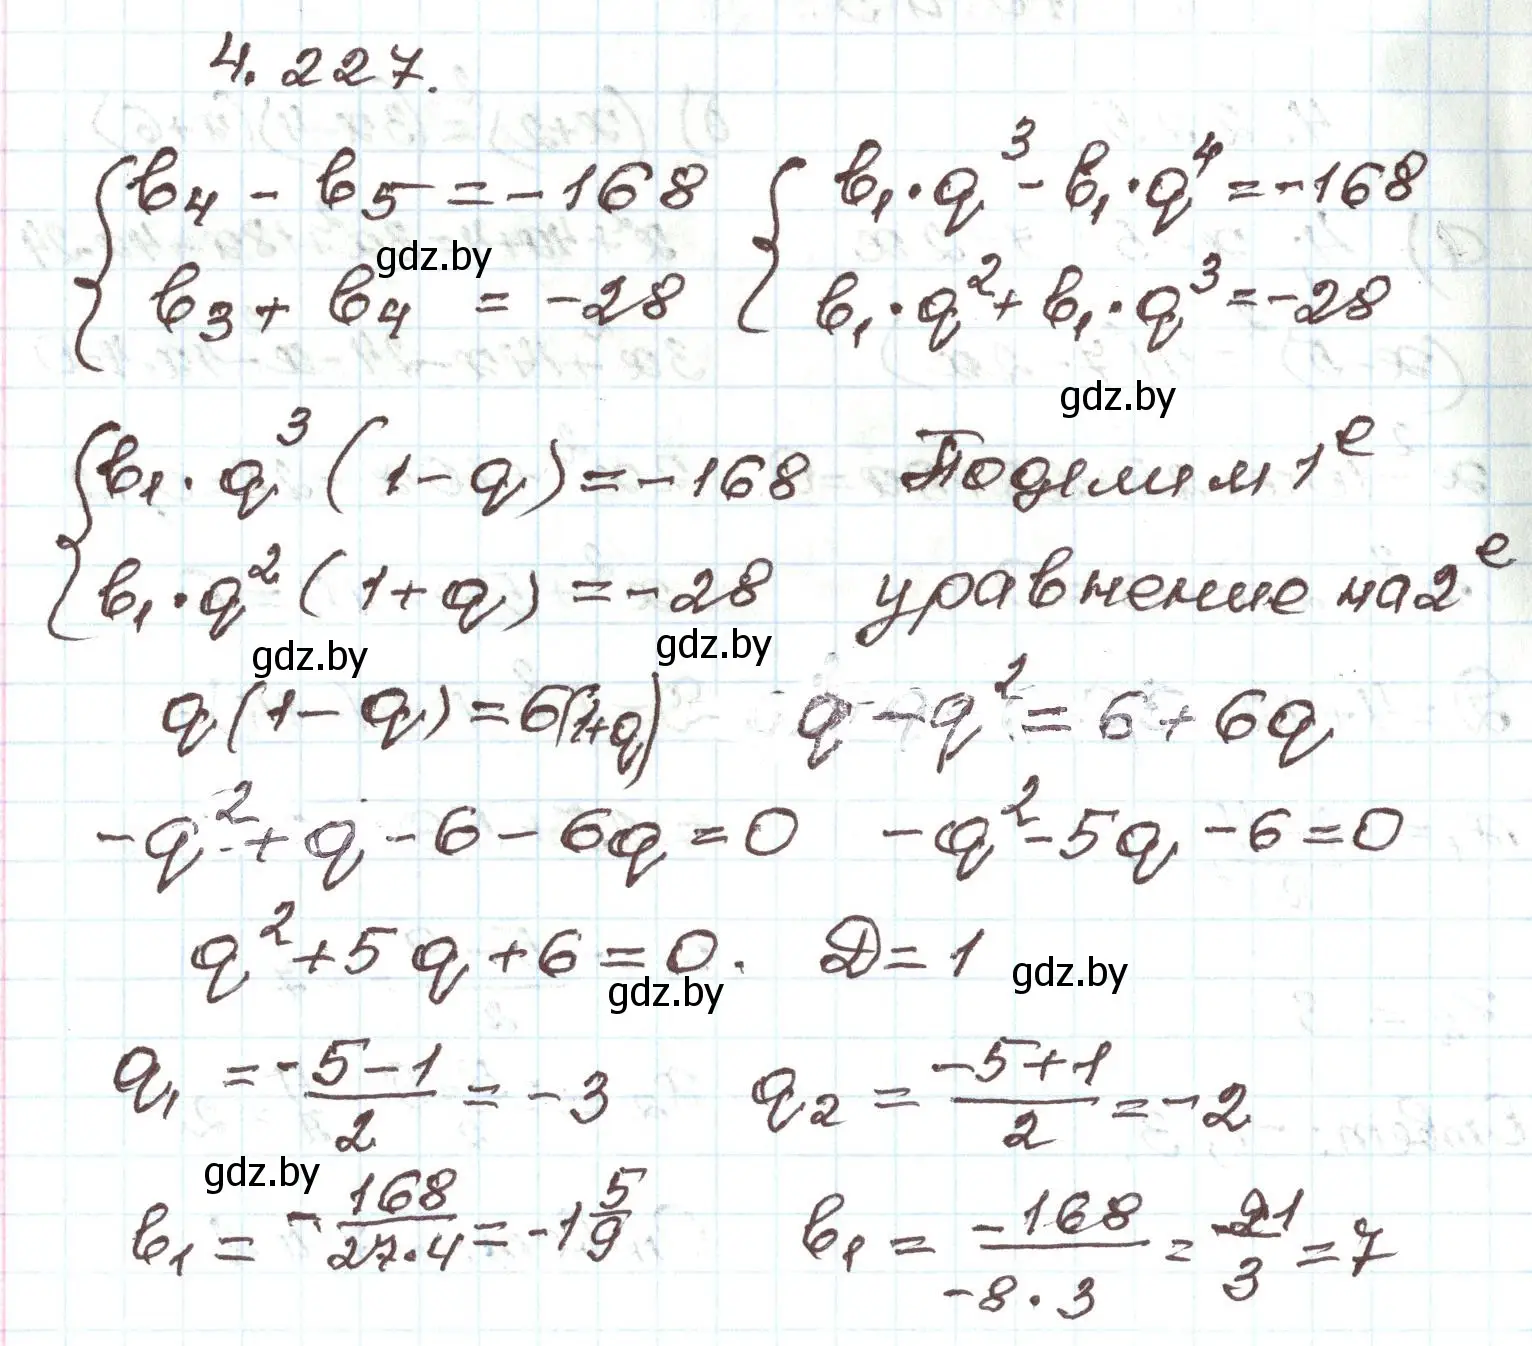 4.227.
{ b₄ - b₅ = -168   { b₁·q³ - b₁·q⁴ = -168
b₃ + b₄ = -28   b₁·q² + b₁·q³ = -28
gdz.by
gdz.by
{ b₁·q³(1-q) = -168   Поделим 1ᵉ
b₁·q²(1+q) = -28   уравнение на 2ᵉ
gdz.by   gdz.by
q(1-q) = 6(1+q)   q - q² = 6 + 6q
-q² + q - 6 - 6q = 0   -q² - 5q - 6 = 0
q² + 5q + 6 = 0.   D = 1
gdz.by   gdz.by
q₁ = (-5-1)/2 = -3   q₂ = (-5+1)/2 = -2
gdz.by
b₁ = -168/(27·4) = -1 5/9   b₁ = -168/(-8·3) = -21/3 = 7